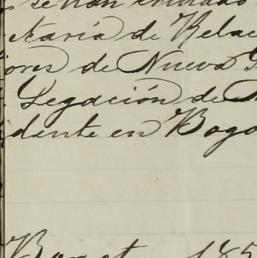 serán enviado
etaría de Relac
iores de Nueva G
Legación de
idente en Bogo
Bogot 185